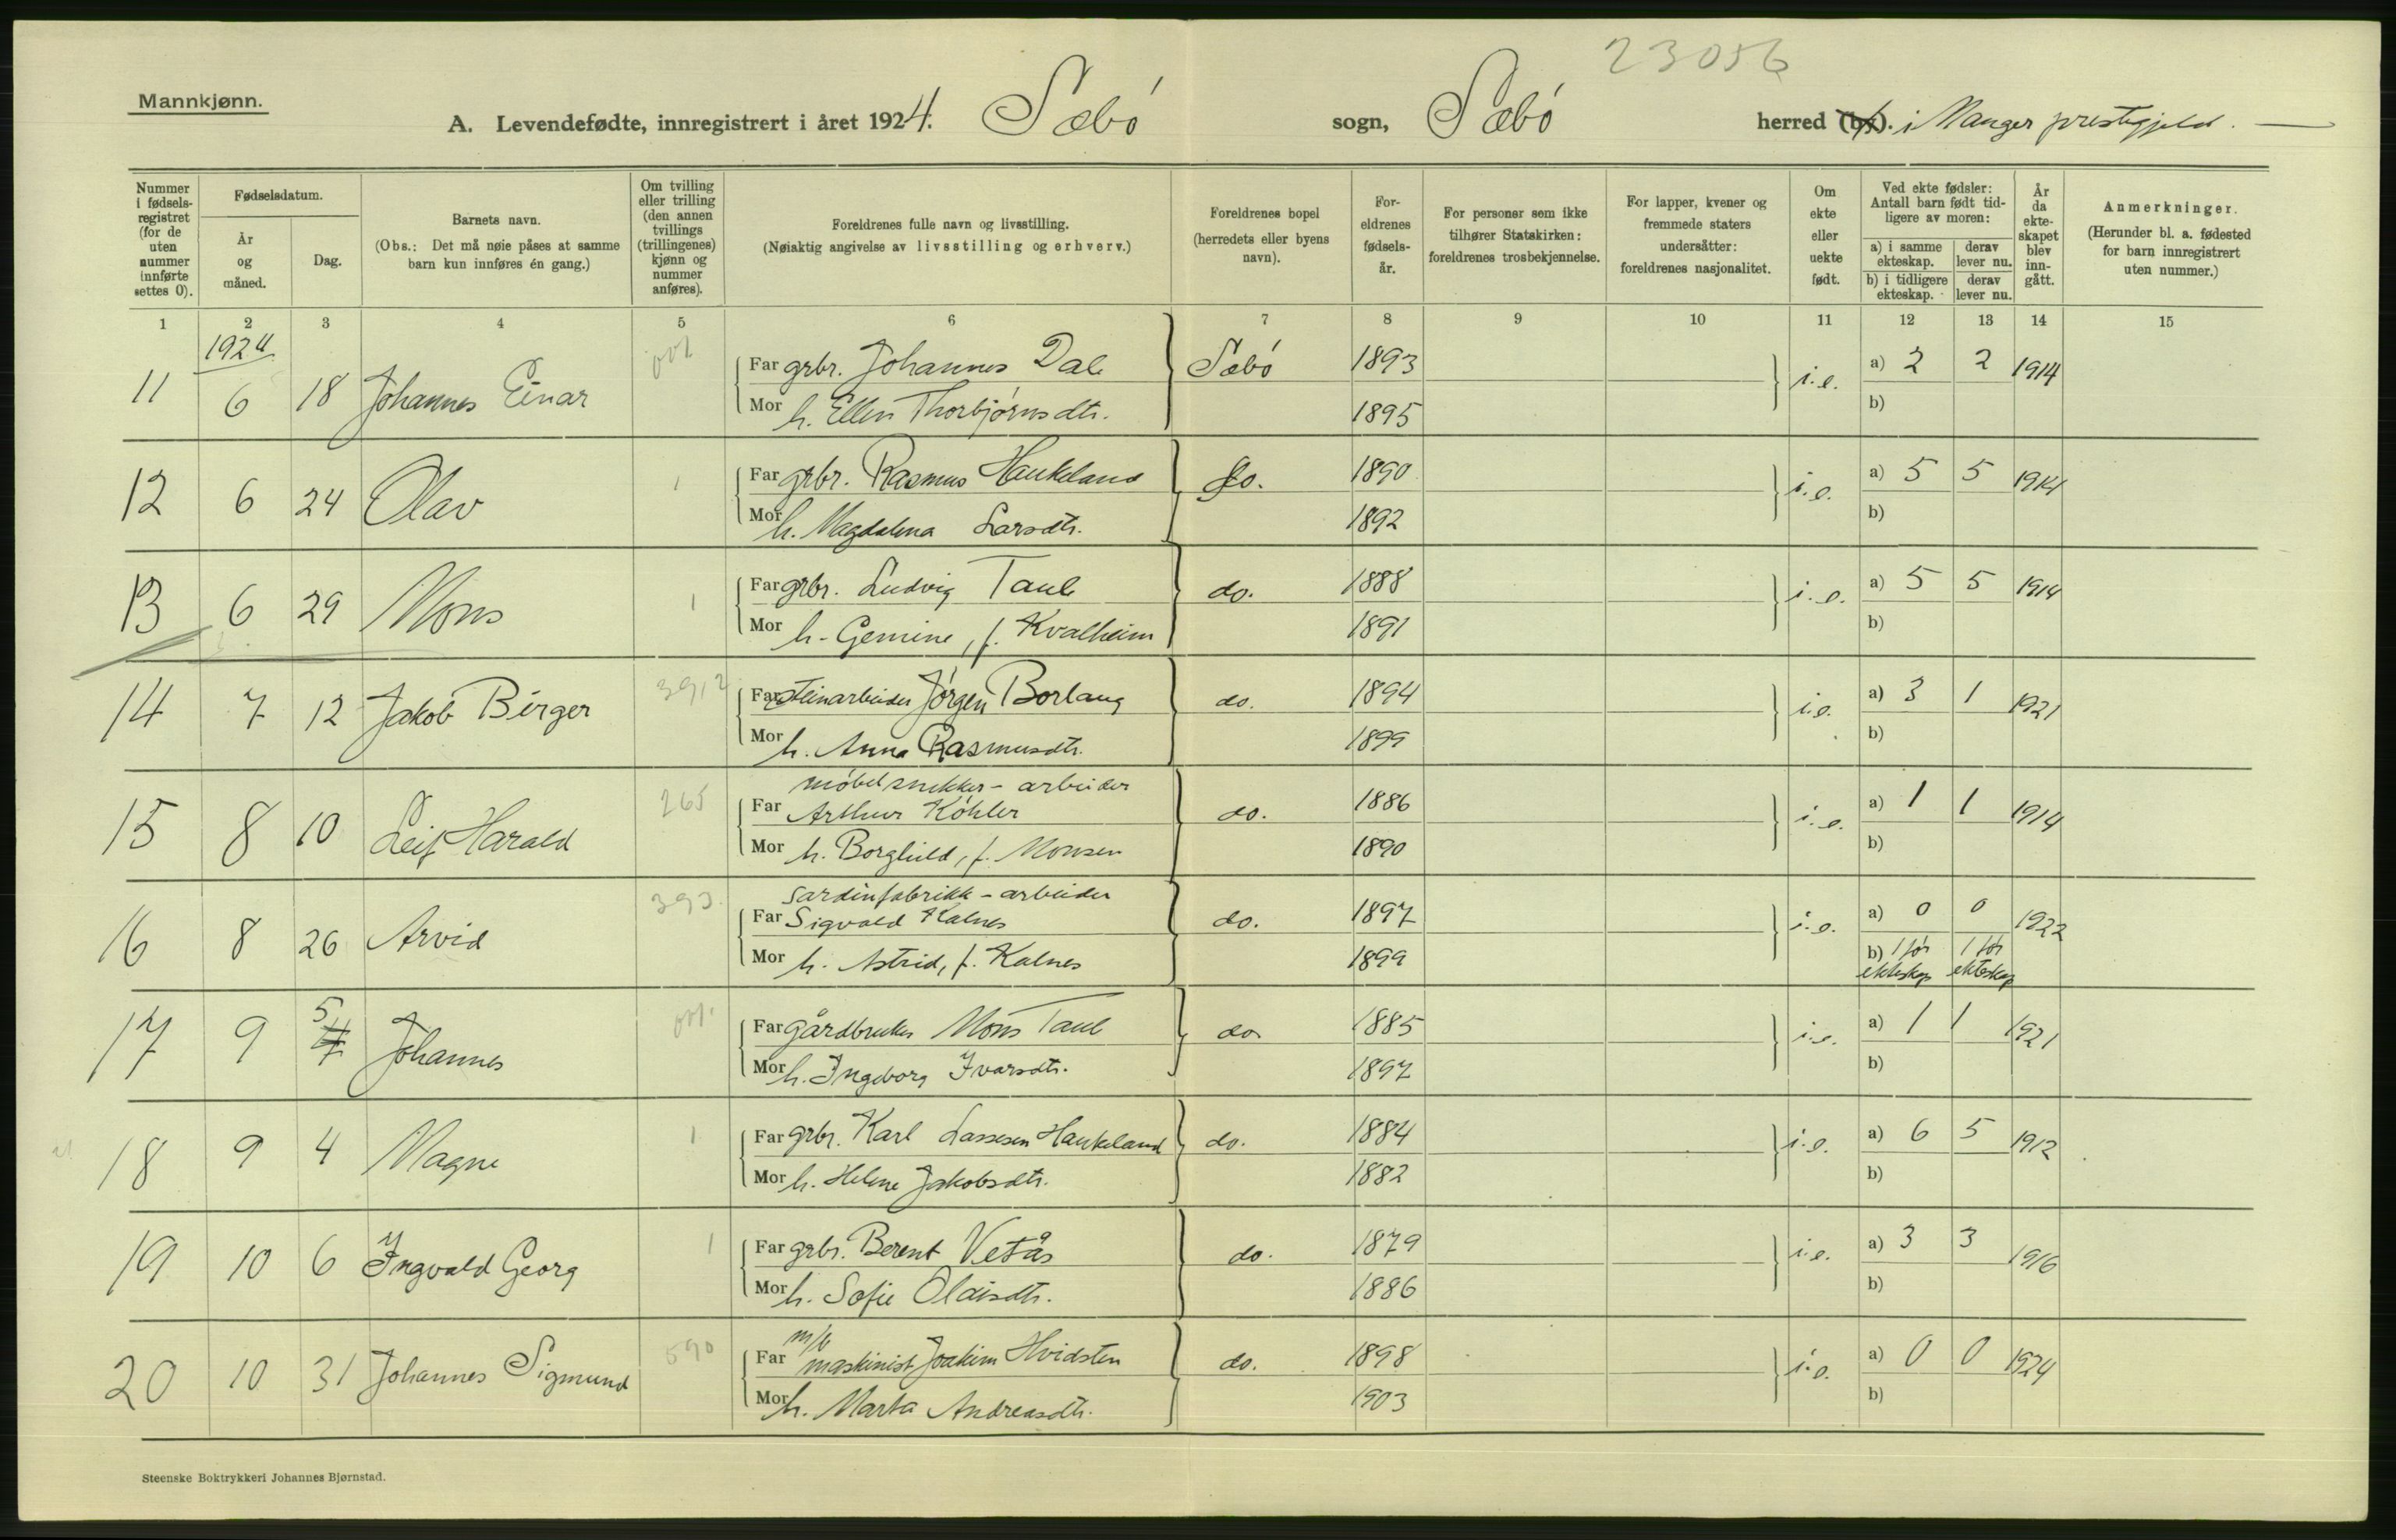 23056
Mannkjønn.
A. Levendefødte, innregistrert i året 1924. Sæbø sogn, Sæbø herred (by). i Manger prestegjeld.
Nummer i fødselsregistret (for de uten nummer innførte settes 0).
Fødselsdatum.
År og måned.
Dag.
Barnets navn.
(Obs.: Det må nøie påses at samme barn kun innføres én gang.)
Om tvilling eller trilling (den annen tvillings (trillingenes) kjønn og nummer anføres).
Foreldrenes fulle navn og livsstilling.
(Nøiaktig angivelse av livsstilling og erhverv.)
Foreldrenes bopel (herredets eller byens navn).
Foreldrenes fødselsår.
For personer som ikke tilhører Statskirken: foreldrenes trosbekjennelse.
For lapper, kvener og fremmede staters undersåtter: foreldrenes nasjonalitet.
Om ekte eller uekte født.
Ved ekte fødsler: Antall barn født tidligere av moren:
a) i samme ekteskap. derav lever nu.
b) i tidligere ekteskap. derav lever nu.
År da ekteskapet blev inngått.
Anmerkninger.
(Herunder bl. a. fødested for barn innregistrert uten nummer.)
1 2 3 4 5 6 7 8 9 10 11 12 13 14 15
1924
11 6 18 Johannes Einar Far grbr. Johannes Dale Sæbø 1893 i.e. a) 2 2 1914
Mor h. Ellen Thorbjørnsdtr. 1895 b)
12 6 24 Olav 1 Far grbr. Rasmus Haukeland do. 1890 i.e. a) 5 5 1914
Mor h. Magdalena Larsdtr. 1892 b)
13 6 29 Mons 1 Far grbr. Ludvig Taule do. 1888 i.e. a) 5 5 1914
Mor h. Gemine, f. Kvalheim 1891 b)
14 7 12 Jakob Birger 3912 Far steinarbeider Jørgen Borlaug do. 1894 i.e. a) 3 1 1921
Mor h. Anna Rasmusdtr. 1899 b)
møbelsnekker - arbeider
15 8 10 Leif Harald 265 Far Arthur Köhler do. 1886 i.e. a) 1 1 1914
Mor h. Borghild, f. Monsen 1890 b)
sardinfabrikk - arbeider
16 8 26 Arvid 393 Far Sigvald Kalnes do. 1897 i.e. a) 0 0 1922
Mor h. Astrid, f. Kalnes 1899 b) 1 før ekteskap 1 før ekteskap
17 9 5 Johannes Far gårdbruker Mons Taule do. 1885 i.e. a) 1 1 1921
Mor h. Ingeborg Ivarsdtr. 1897 b)
18 9 4 Magne 1 Far grbr. Karl Lassesen Haukeland do. 1884 i.e. a) 6 5 1912
Mor h. Helene Jakobsdtr. 1882 b)
19 10 6 Ingvald Georg 1 Far grbr. Berent Vetås do. 1879 i.e. a) 3 3 1916
Mor h. Sofie Olaisdtr. 1886 b)
m/k
20 10 31 Johannes Sigmund 590 Far maskinist Joakim Hvidsten do. 1898 i.e. a) 0 0 1924
Mor h. Marta Andreasdtr. 1903 b)
Steenske Boktrykkeri Johannes Bjørnstad.